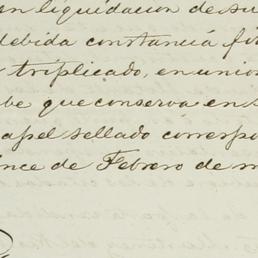 an liquidacion de su
debida constancia fi
triplicado, en union
be que conserva en s
apel sellado correspo
ince de Febrero de m